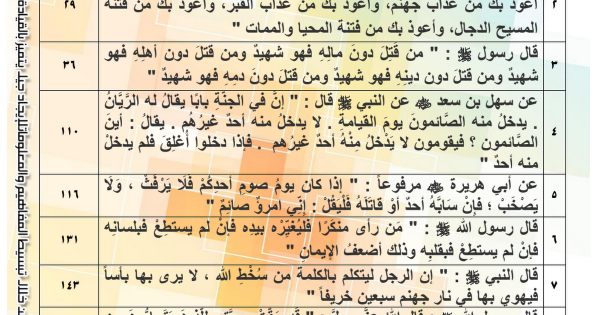 ٢ أعوذ بك من عذاب جهنم، وأعوذ بك من عذاب القبر، وأعوذ بك من فتنة ٢٩
المسيح الدجال، وأعوذ بك من فتنة المحيا والممات "
٣ قال رسول ﷺ : " من قُتِلَ دونَ مالِهِ فهو شهيدٌ ومن قتلَ دونَ أهلِهِ فهو ٣٦
شهيدٌ ومن قتلَ دون دينِهِ فهو شهيدٌ ومن قتلَ دونَ دمِهِ فهو شهيدٌ "
٤ عن سهل بن سعد ﷺ عن النبي ﷺ قال : " إنَّ في الجنَّةِ بابًا يقالُ له الرَّيَّانُ ١١٠
. يدخلُ منه الصَّائمونَ يومَ القيامةِ . لا يدخلُ منه أحدٌ غيرُهُم . يقالُ : أينَ
الصَّائمون ؟ فيقومون لا يَدْخُلُ مِنْهُ أحدٌ غيرُهم . فإذا دخلوا أُغلِقَ فلم يدخُلْ
منه أحدٌ "
٥ عن أبي هريرة مرفوعاً : " إذا كان يومُ صومِ أحدِكُمْ فَلَا يَرْفُثْ ، وَلَا ١١٦
يَصْخَبْ ؛ فإنْ سَابَّهُ أحدٌ أوْ قاتَلَهُ فَلْيَقُلْ : إنِّي امرؤٌ صائمٌ "
٦ قال رسول الله ﷺ : " مَن رأى منكَرًا فليُغيِّرْه بيدِه فإنْ لم يستطِعْ فبلسانِه ١٣١
فإنْ لم يستطِعْ فبقلبِه وذلك أضعفُ الإيمانِ "
٧ قال النبي ﷺ : " إن الرجل ليتكلم بالكلمة من سُخْطِ الله ، لا يرى بها بأساً ١٤٣
فيهوي بها في نار جهنم سبعين خريفاً "
من خلال تبسيط المفاهيم والمعلومات لإيجاد جيل يتميز بالقيادة